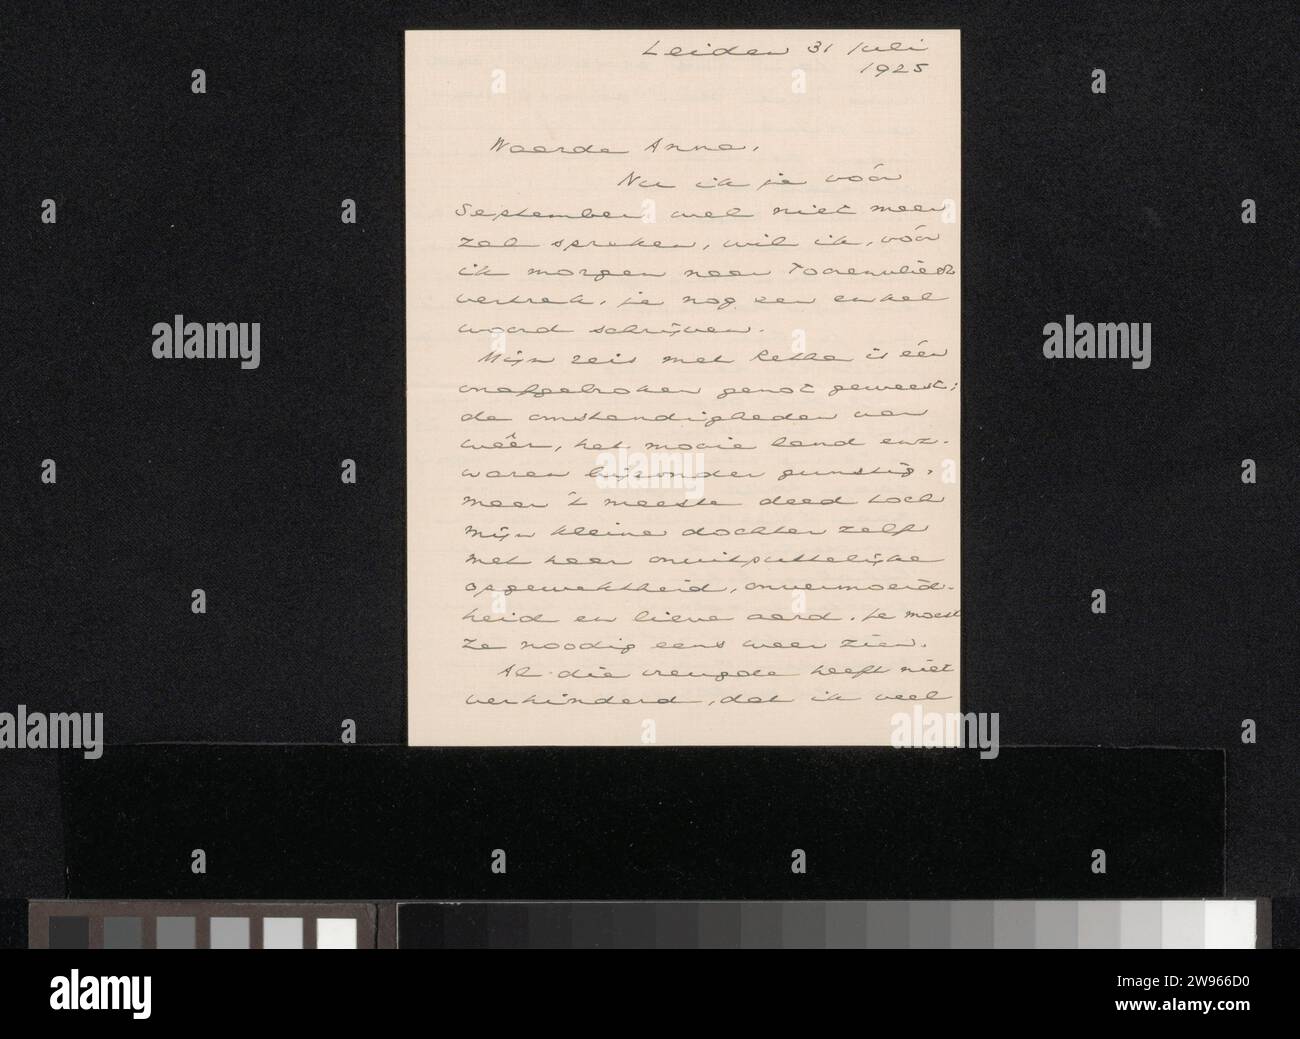 Leiden 31 Juli
1925
Waarde Anna,
Nu ik je vóór
September wel niet meer
zal spreken, wil ik, vóór
ik morgen naar Toorenvliedt
vertrek, je nog een enkel
woord schrijven.
Mijn reis met Retha is één
onafgebroken genot geweest;
de omstandigheden van
weêr, het mooie land enz.
waren bijzonder gunstig,
maar 't meeste deed toch
mijn kleine dochter zelf
met haar onuitputtelijke
opgewektheid, onvermoeid-
heid en lieve aard. Je moest
ze noodig eens weer zien.
Al die vreugde heeft niet
verhinderd, dat ik veel
alamy
Image ID: 2W966D0
www.alamy.com